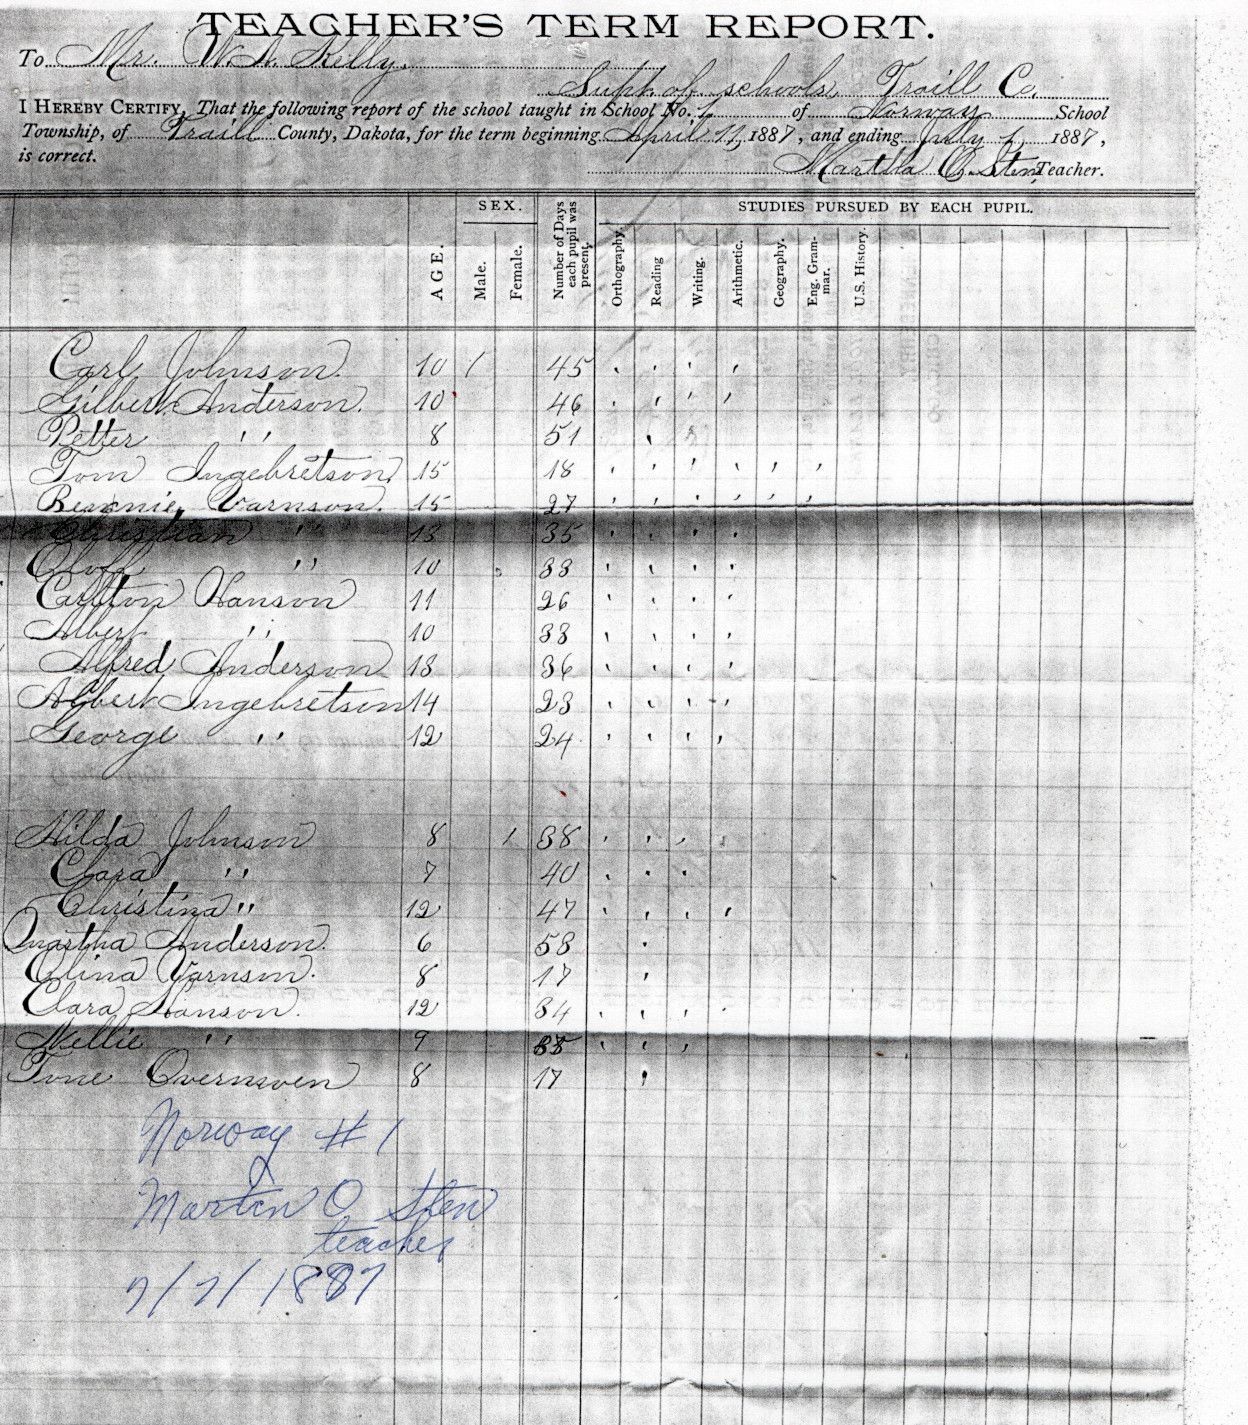 TEACHER'S TERM REPORT.
To Mr. W.A. Kelly,
Supt. of schools Traill Co.
I HEREBY CERTIFY, That the following report of the school taught in School No. 1 of Norway School
Township, of Traill County, Dakota, for the term beginning April 11, 1887, and ending July 1, 1887,
is correct.
Martha O. Sten, Teacher.
AGE. SEX. Male. Female. Number of Days each pupil was present. STUDIES PURSUED BY EACH PUPIL. Orthography. Reading Writing. Arithmetic. Geography. Eng. Grammar. U.S. History.
Carl Johnson. 10 / 45 ' ' ' '
Gilbert Anderson. 10 46 ' ' ' '
Petter " 8 51 '
Tom Ingebretson, 15 18 ' ' ' ' ' '
Bennie Varnson. 15 27 ' ' ' ' ' '
Christian " 13 35 ' ' ' '
Oloff " 10 33 ' ' ' '
Carlton Hanson 11 26 ' ' ' '
Albert " 10 33 ' ' ' '
Alfred Anderson 13 36 ' ' ' '
Albert Ingebretson 14 23 ' ' ' '
George " 12 24 ' ' ' '
Hilda Johnson 8 / 38 ' ' ' '
Clara " 7 40 ' ' '
Christina " 12 47 ' ' ' '
Martha Anderson. 6 58 '
Elina Varnson. 8 17 '
Clara Hanson. 12 34 ' ' ' '
Nellie " 9 35 ' ' '
Tone 8 17 '
Norway #1
Marten O Sten
teacher
7/7/1887